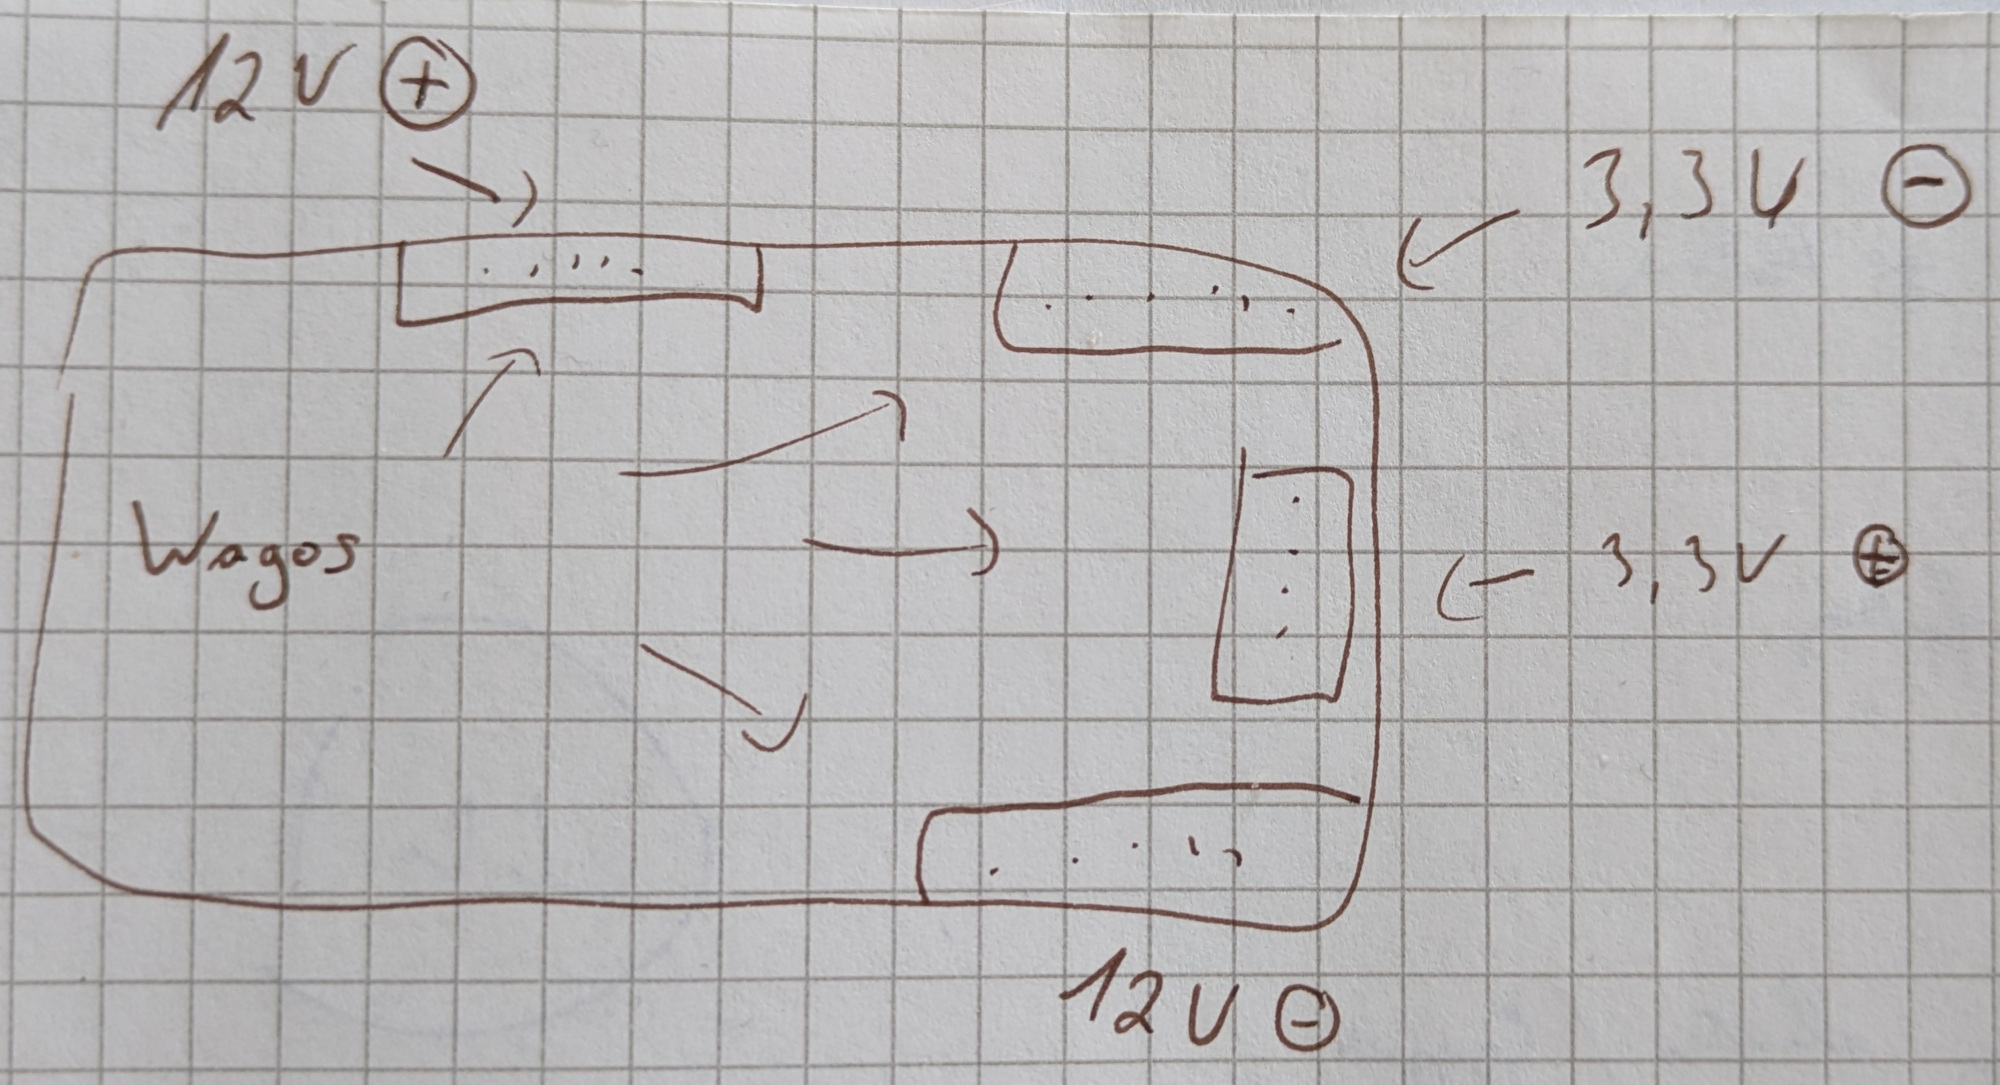 12V ⊕
3,3V ⊖
Wagos
3,3V ⊕
12V ⊖